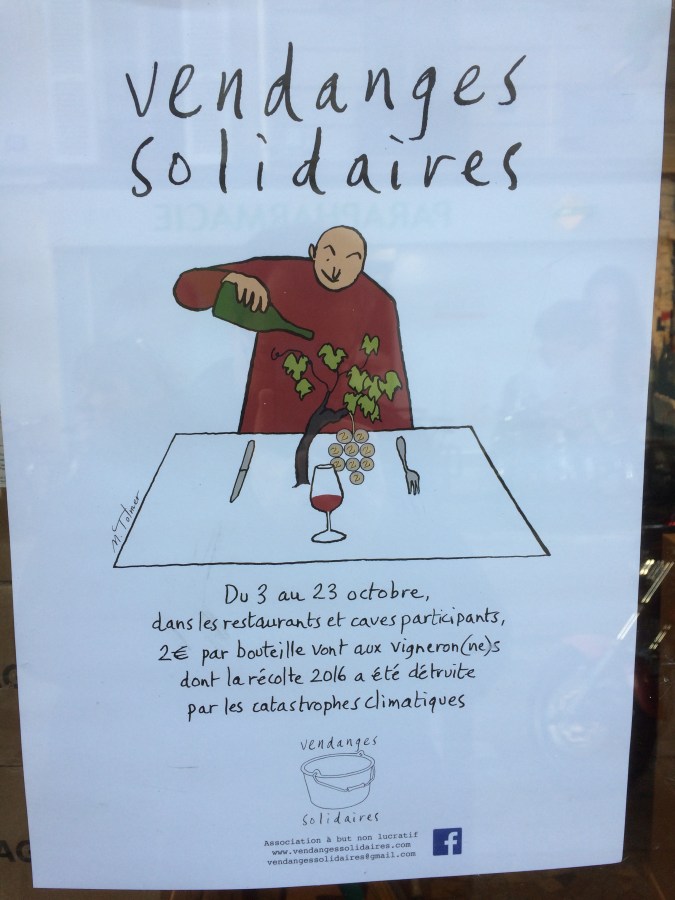 vendanges
solidaires
PARAPHARMACIE
M. Tolmer
Du 3 au 23 octobre,
dans les restaurants et caves participants,
2€ par bouteille vont aux vigneron(ne)s
dont la récolte 2016 a été détruite
par les catastrophes climatiques
vendanges
solidaires
Association à but non lucratif
www.vendangessolidaires.com
vendangessolidaires@gmail.com
f